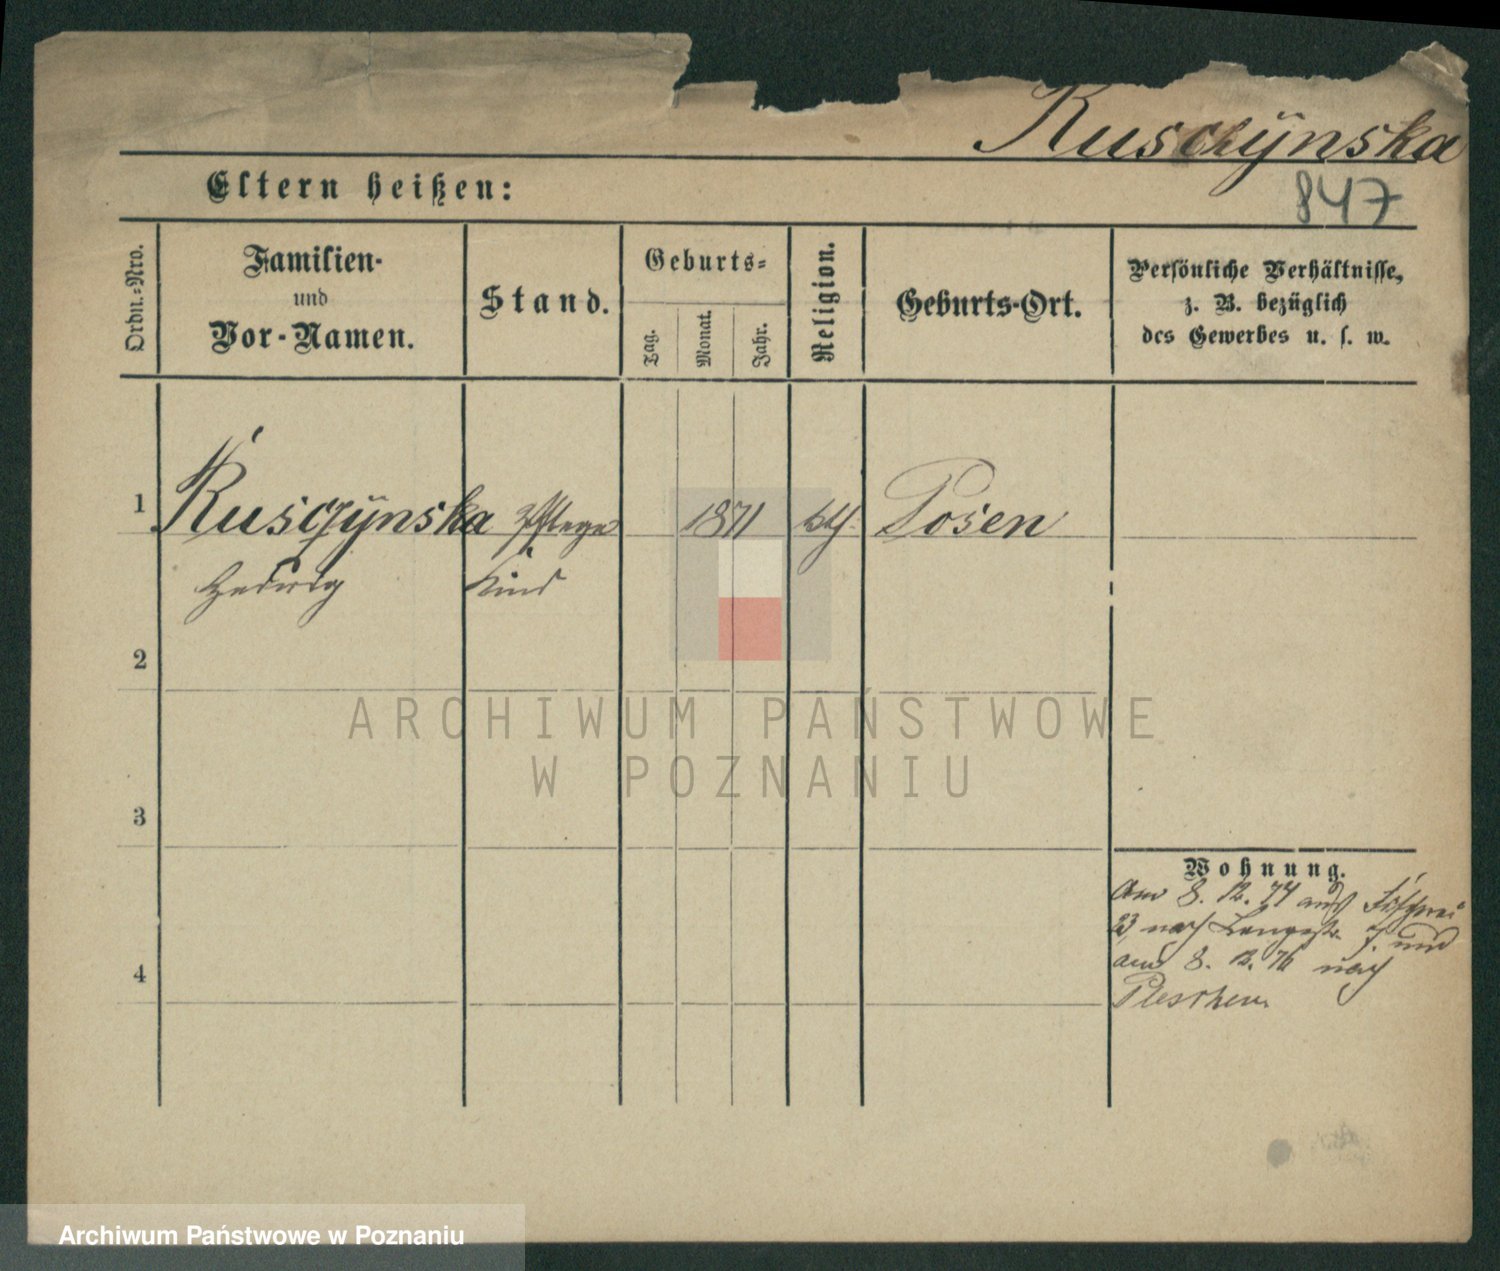 Rusczÿnska
847
Eltern heißen:
Ordn.-Nro.
Familien-
und
Vor-Namen.
Stand.
Geburts-
Tag.
Monat.
Jahr.
Religion.
Geburts-Ort.
Persönliche Verhältnisse,
z. B. bezüglich
des Gewerbes u. s. w.
1 Rusczÿnska Pflege 1871 kth. Posen
Hedwig Kind
2
3
4
Wohnung.
Am 8. 12. 74 aus Fischerei
23 nach Langestr. 7. und
am 8. 12. 76 nach
Pleschen.
ARCHIWUM PAŃSTWOWE
W POZNANIU
Archiwum Państwowe w Poznaniu